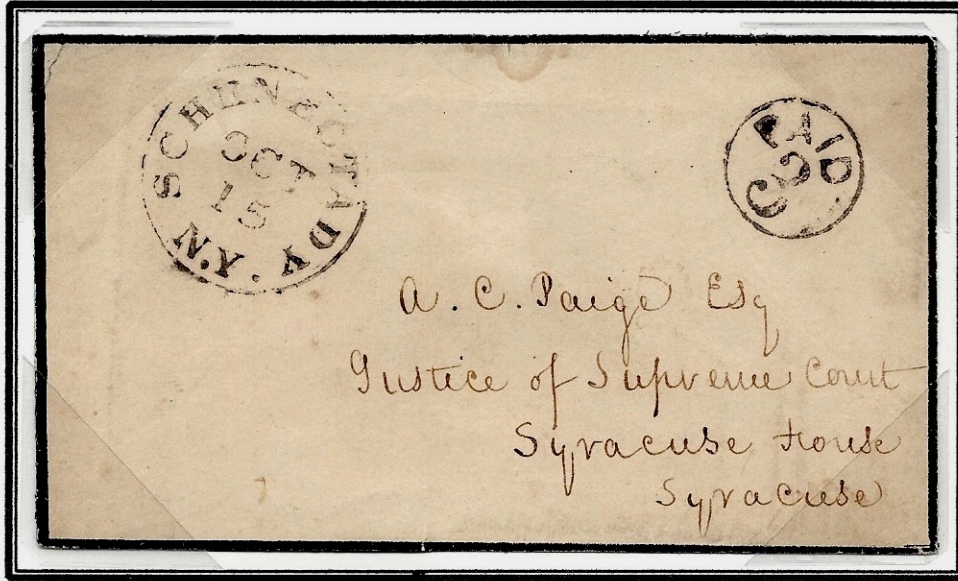 SCHENECTADY N.Y.
OCT
15
PAID
3
A. C. Paige Esq
Justice of Supreme Court
Syracuse House
Syracuse